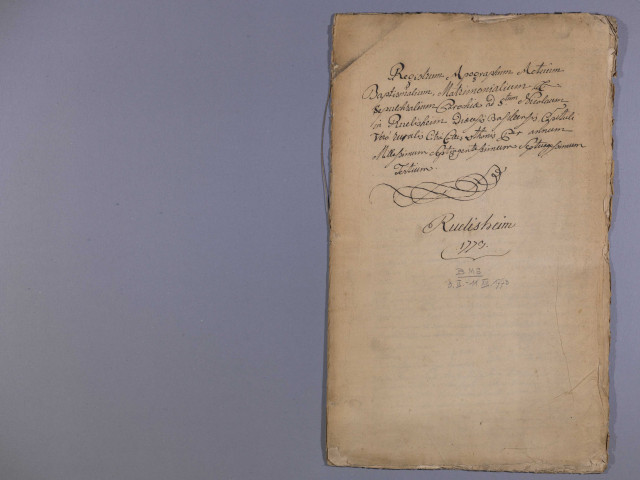 Registrum Apographum Actuum
Baptismalium, Matrimonialium &
Sepulchralium Parochiæ ad Stum Nicolaum
in Ruelisheim Diœcesis Basileensis Capituli
Vero ruralis Citra Colles Othonis Pro annum
Millesimum Septingentesimum Septuagesimum
Tertium.
Ruelisheim
1773.